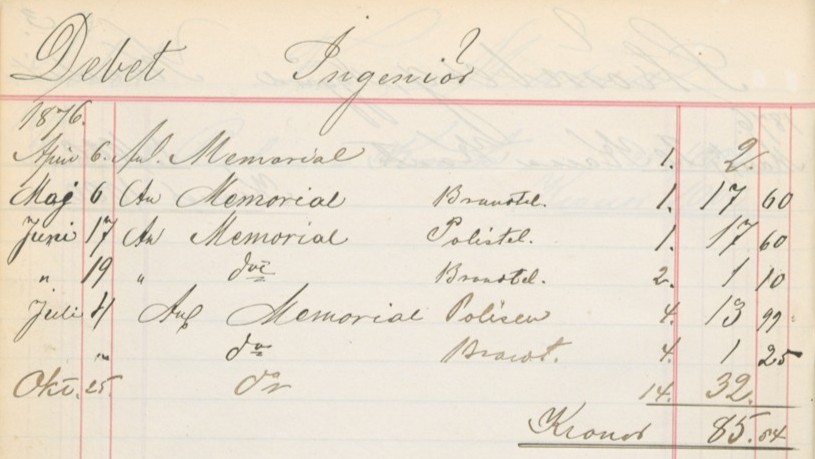 Debet Ingeniör
1876.
April 6. An. Memorial 1. 2.
Maj 6 An Memorial Brandtel. 1. 17 60
Juni 17 An Memorial Polistel. 1. 17 60
" 19 " do Brandtel. 2. 1 10
Juli 4 An Memorial Polisen 4. 13 99
" do Brandt. 4. 1 25
Okt. 25. do 14. 32.
Kronor 85.54